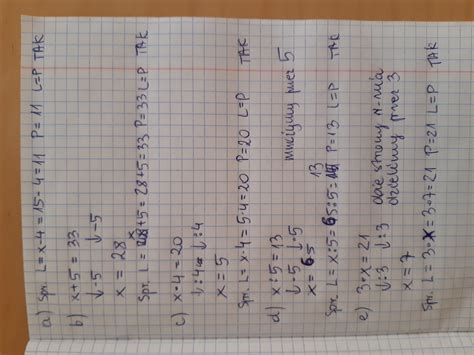 a) Spr. L = x-4 = 15-4 = 11 P = 11 L=P TAK
b) x+5 = 33
↓-5 ↓-5
x = 28
Spr. L = x+5 = 28+5 = 33 P = 33 L=P TAK
c) x·4 = 20
↓:4 ↓:4
x = 5
Spr. L = x·4 = 5·4 = 20 P = 20 L=P TAK
d) x:5 = 13 mnożymy przez 5
↓·5 ↓·5
x = 65
Spr. L = x:5 = 65:5 = 13 P = 13 L=P TAK
e) 3·x = 21 obie strony r-nia
↓:3 ↓:3 dzielimy przez 3
x = 7
Spr. L = 3·x = 3·7 = 21 P = 21 L=P TAK